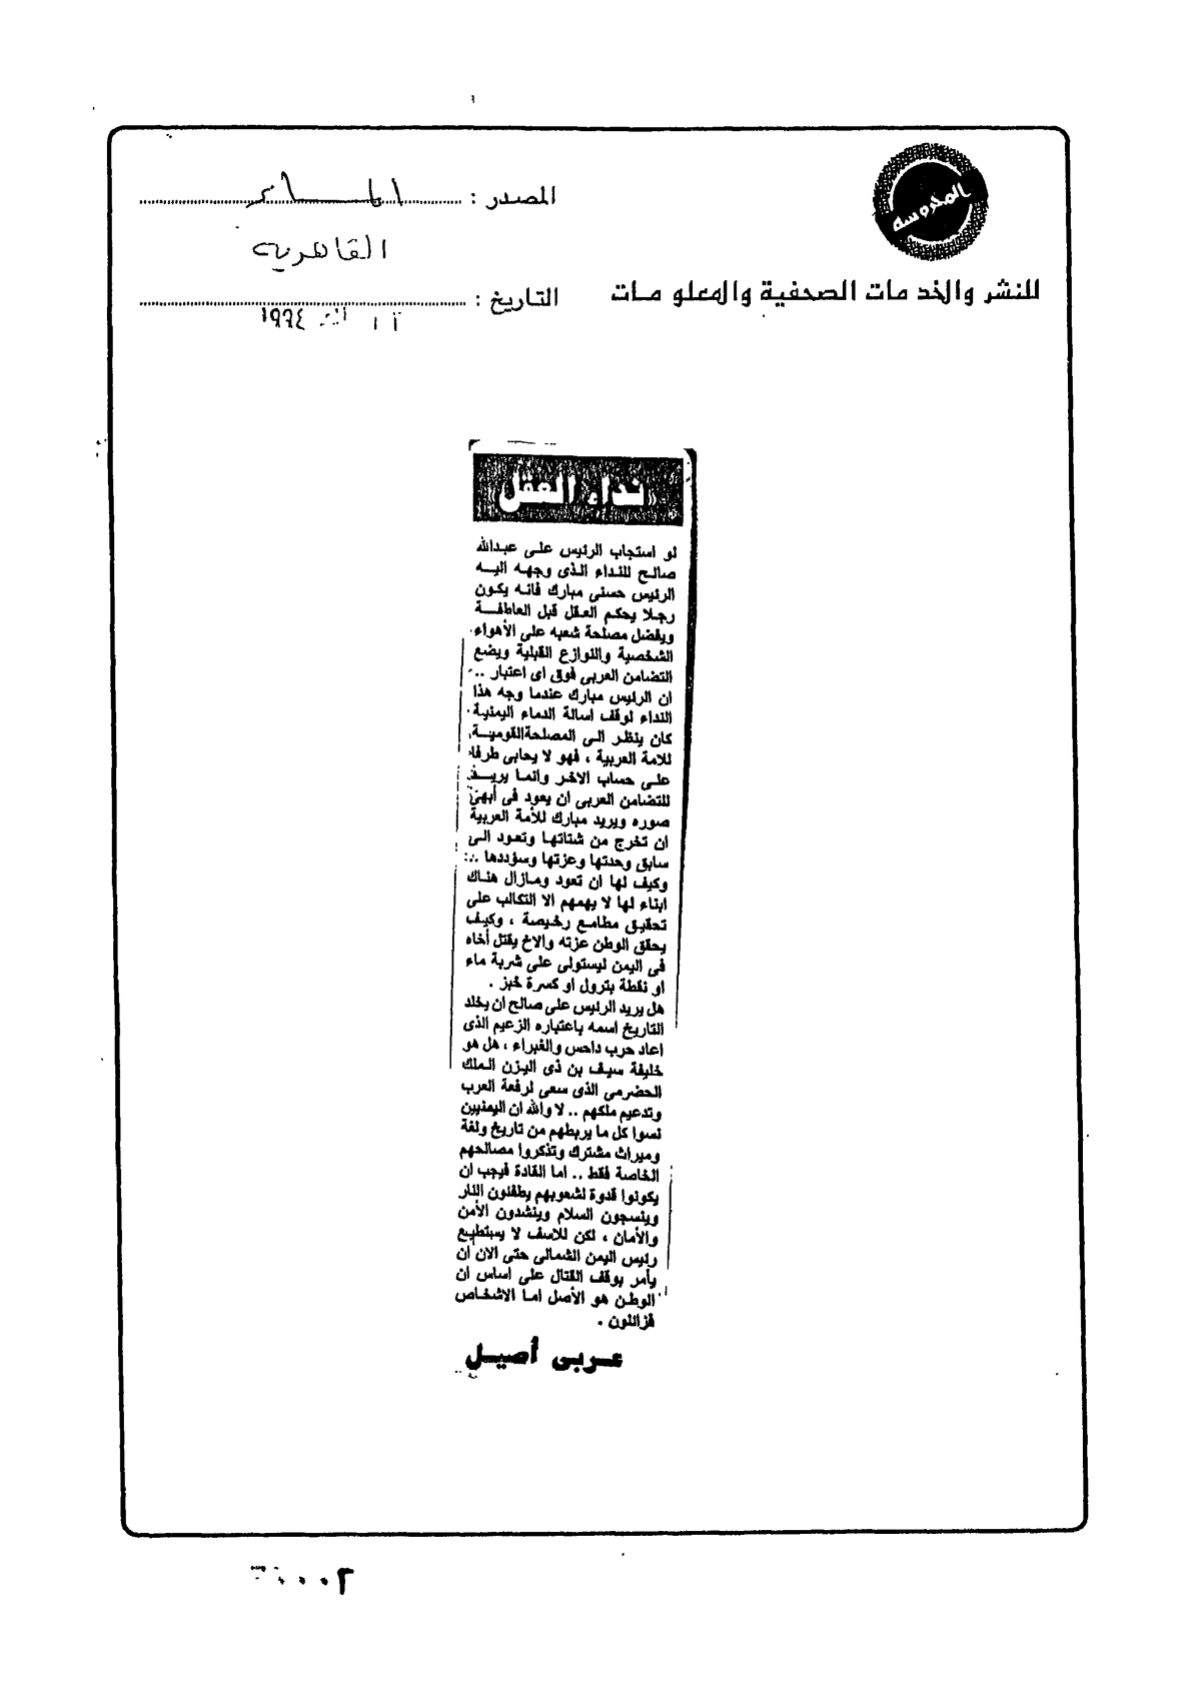 المحروسه
للنشر والخدمات الصحفية والمعلومات
المصدر :
القاهرية
التاريخ :
١٩٩٤
نداء العقل
لو استجاب الرئيس على عبدالله
صالح للنداء الذى وجهه اليه
الرئيس حسنى مبارك فانه يكون
رجلا يحكم العقل قبل العاطفة
ويفضل مصلحة شعبه على الأهواء
الشخصية والنوازع القبلية ويضع
التضامن العربى فوق اى اعتبار ..
ان الرئيس مبارك عندما وجه هذا
النداء لوقف اسالة الدماء اليمنية
كان ينظر الى المصلحة القومية
للامة العربية ، فهو لا يحابى طرفا
على حساب الاخر وانما يريد
للتضامن العربى ان يعود فى أبهى
صوره ويريد مبارك للأمة العربية
ان تخرج من شتاتها وتعود الى
سابق وحدتها وعزتها وسؤددها ..
وكيف لها ان تعود ومازال هناك
ابناء لها لا يهمهم الا التكالب على
تحقيق مطامع رخيصة ، وكيف
يحقق الوطن عزته والاخ يقتل أخاه
فى اليمن ليستولى على شربة ماء
او نقطة بترول او كسرة خبز .
هل يريد الرئيس على صالح ان يخلد
التاريخ اسمه باعتباره الزعيم الذى
اعاد حرب داحس والغبراء ، هل هو
خليفة سيف بن ذى اليزن الملك
الحضرمى الذى سعى لرفعة العرب
وتدعيم ملكهم .. لا والله ان اليمنيين
نسوا كل ما يربطهم من تاريخ ولغة
وميراث مشترك وتذكروا مصالحهم
الخاصة فقط .. اما القادة فيجب ان
يكونوا قدوة لشعوبهم يطفئون النار
وينسجون السلام وينشدون الأمن
والأمان ، لكن للاسف لا يستطيع
رئيس اليمن الشمالى حتى الان ان
يأمر بوقف القتال على اساس ان
الوطن هو الأصل اما الاشخاص
فزائلون .
عربى أصيل